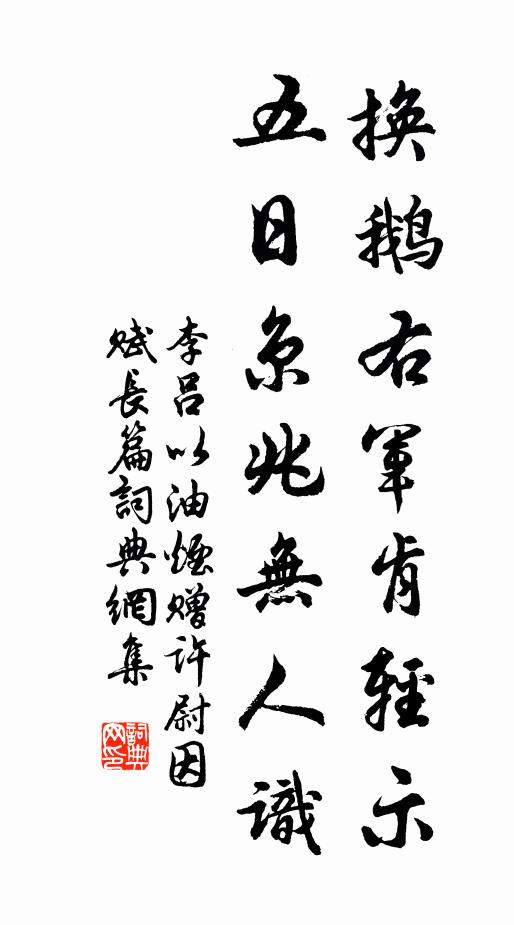 換鹅右軍肯輕示
五日京兆無人識
李吕以油煙赠許尉因
赋長篇詞典網集
詞典
网印